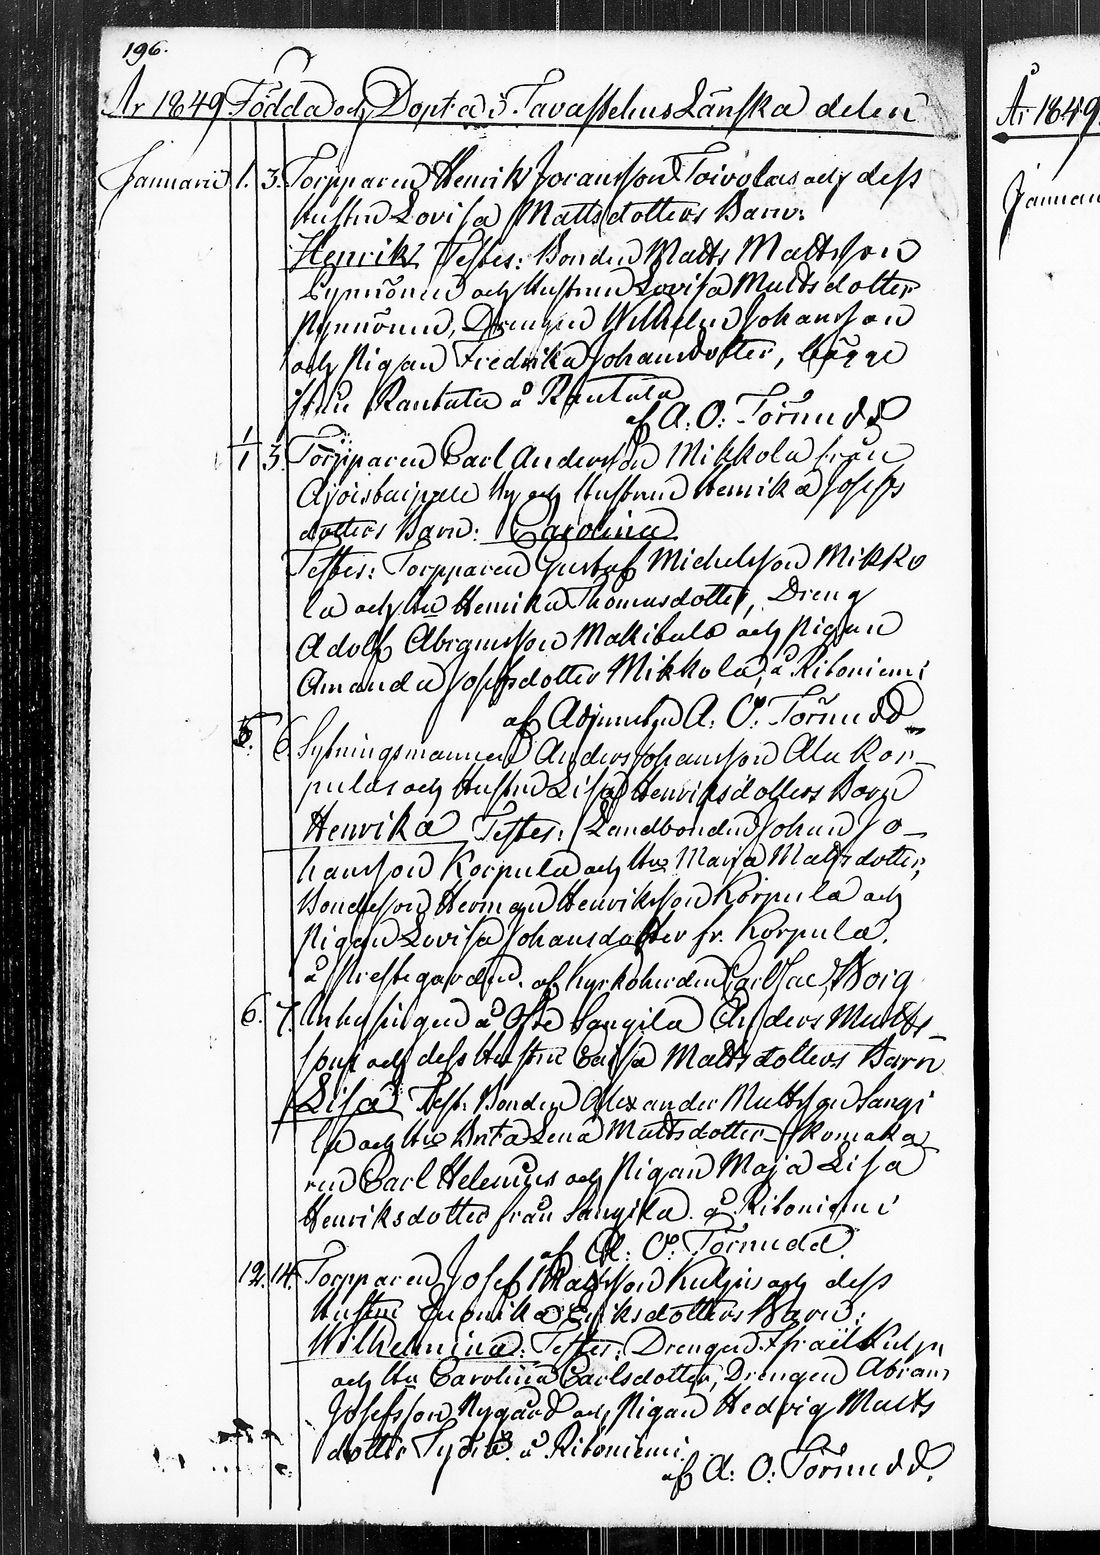 196.
År 1849 Födda och Döpta i Tavastehus Länska delen
År 1849
Januarii 1. 3. Torpparen Henrik Johansson Toivolas och dess
Januari
Hustru Lovisa Mattsdotters Barn:
Henrik Testes: Bonden Matts Mattsson
och Hustrun Lovisa Mattsdotter
Drengen Wilhelm Johansson
och Pigan Fredrika Johansdotter, bägge
från Rautala å Rautala
af A: O: Törnudd
1 3. Torpparen Carl Andersson Mikkola från
by och Hustrun Henrika Josefs
dotters Barn: Carolina
Testes: Torpparen Gustaf Michelsson Mikko
la och Hu Henrika Thomasdotter, Dreng
Adolf Abramsson och Pigan
Amanda Josefsdotter Mikkola, å Riboniemi
af Adjuncten A: O: Törnudd
5. 6. Sytningsmannen Anders Johansson Ala Kor-
pulas och Hustru Lisa Henriksdotters Barn
Henrika Testes: Landbonden Johan Jo-
hansson Korpula och Hu Maria Mattsdotter,
Bondeson Herman Henriksson Korpula och
Pigan Lovisa Johansdotter fr. Korpula.
å Prestegården. af Kyrkoherden Carl Jac. Borg
6. 7. Inhysingen å Ofre Sangila Anders Matts-
sons och dess Hustru Caisa Mattsdotters Barn
Lisa Test: Bonden Alexander Mattsson Sangi
la och Hu Brita Lena Mattsdotter, Skomaka
ren Carl Helenius och Pigan Maja Lisa
Henriksdotter från Sangila. å Riboniemi
af A: O: Törnudd.
12. 14. Torpparen Josef Mattsson och dess
Hustru Eriksdotters Barn:
Wilhelmina: Testes: Drengen Israel
och Hu Carolina Carlsdotter, Drengen Abram
Josefsson Nygård och Pigan Hedvig Matts
dotter å Riboniemi.
af A: O: Törnudd.